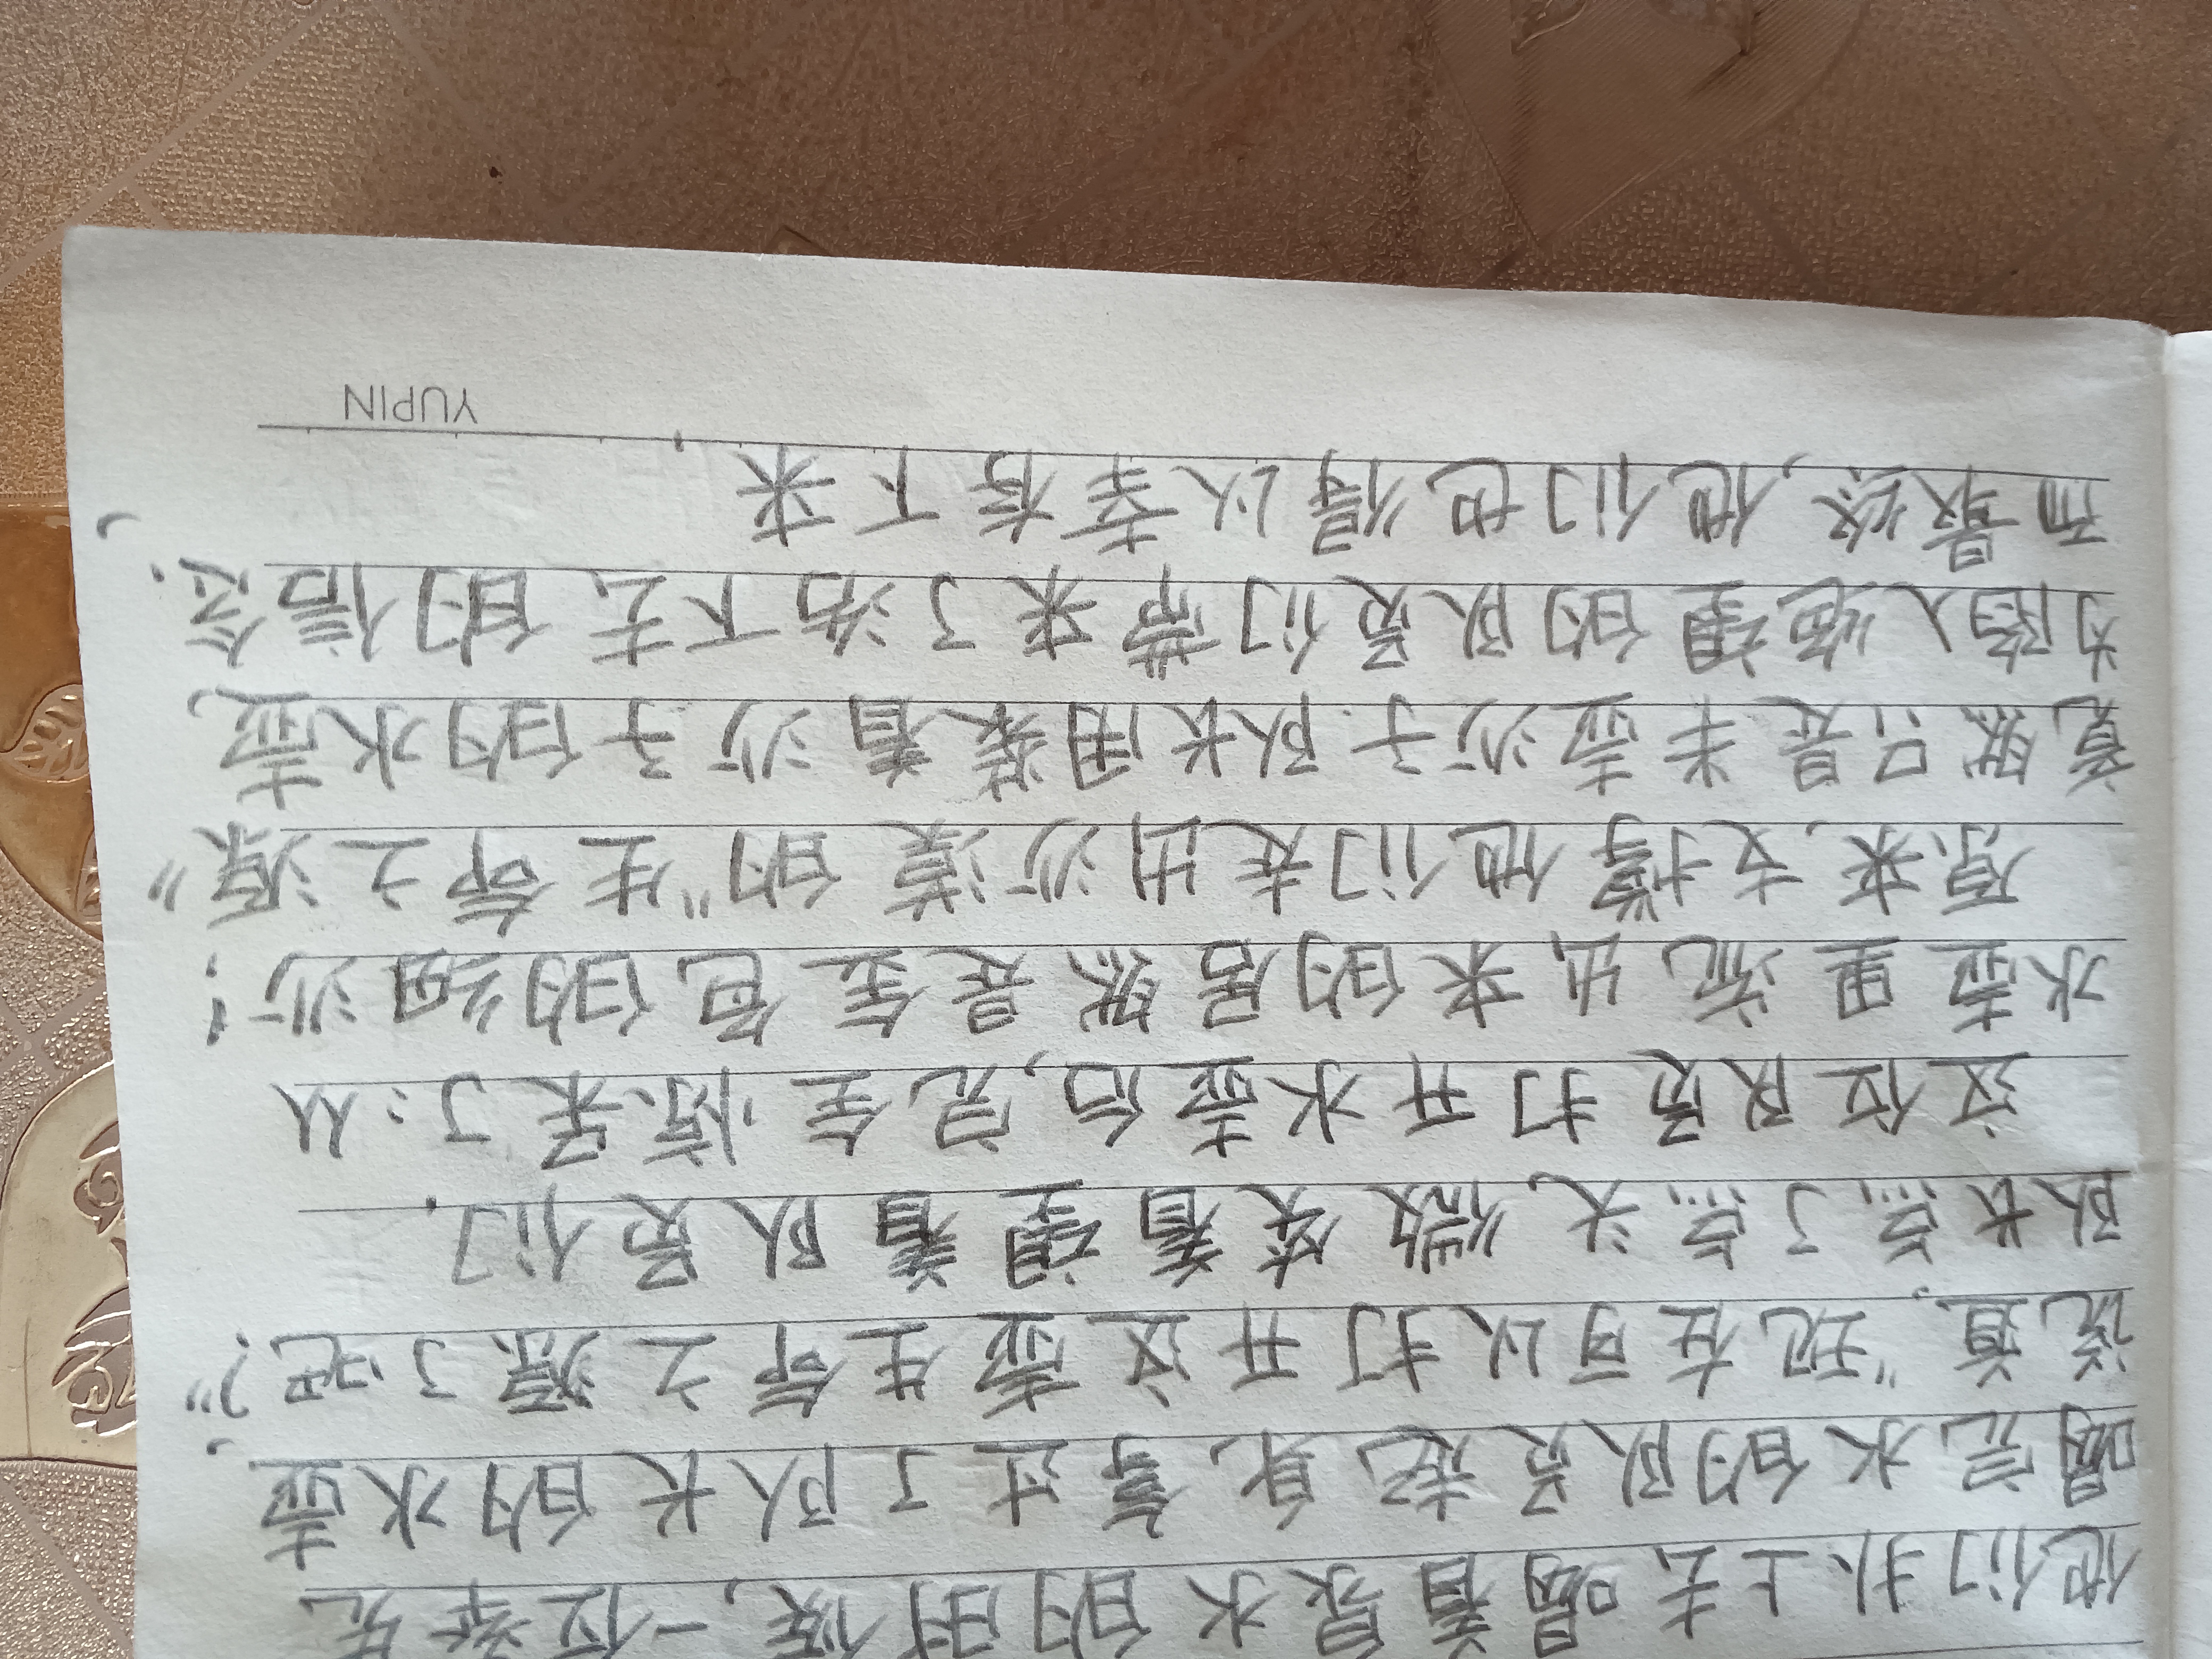 他们扑上去喝着泉水的时候,一位率先
喝完水的队员起身,拿过了队长的水壶,
说道,"现在可以打开这壶生命之源了吧?"
队长点了点头,微笑着望着队员们.
这位队员打开水壶后,完全惊呆了:从
水壶里流出来的居然是金色的细沙!
原来,支撑他们走出沙漠的"生命之源"
竟然只是半壶沙子.队长用装着沙子的水壶,
为陷入绝望的队员们带来了活下去的信念.,
而最终,他们也得以幸存下来.
YUPIN